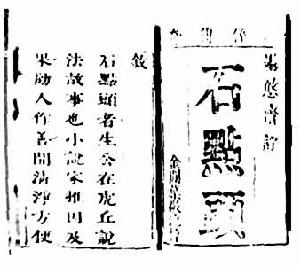 墨憨齋評
石點頭
敘
石點頭者生公在虎丘說
法故事也小說家推因及
果勸人作善開清淨方便